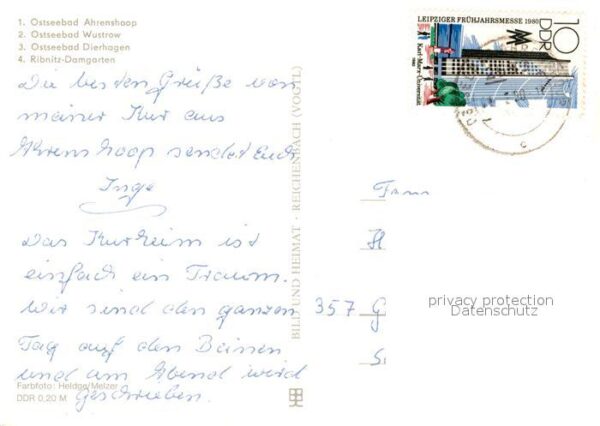 1. Ostseebad Ahrenshoop
2. Ostseebad Wustrow
3. Ostseebad Dierhagen
4. Ribnitz-Damgarten
Die besten Grüße von
meiner Kur aus
Ahrenshoop sendet Euch
Inge
Das Kurheim ist
einfach ein Traum.
Wir sind den ganzen
Tag auf den Beinen
und am Abend wird
geschrieben.
Farbfoto: Heldge/Melzer
DDR 0,20 M
BILD UND HEIMAT · REICHENBACH (VOGTL)
LEIPZIGER FRÜHJAHRSMESSE 1980
DDR
10
Karl-Marx-Universität
1980
Fam
H
357 G
S
privacy protection
Datenschutz